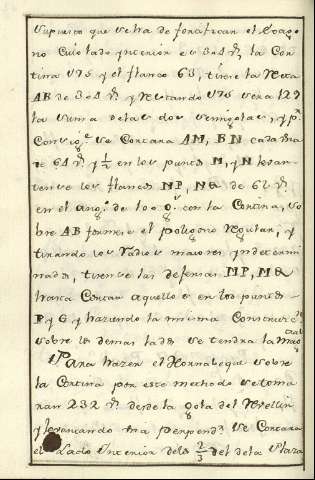 supuesto que se ha de fortificar el Exago
no cuio lado ynterior es 304 Vs la Cor
tina 175 y el flanco 65, tirese la Recta
AB de 304 Vs y Restando 175 sera 129
la suma delas dos semigolas, y pr
Consige se Cortaran AM, BN cada una
de 64 Vs y 1/2 en los puntos M, y N levan
tense los flancos MP, NQ de 65 Vs
en el angs de 100 gs con la Cortina, so
bre AB formese el poligono Regular, y
tirando los Radios maiores yndetermi
nados, tirense las defensas MP, MQ
hasta Cortar aquellos en los puntos
P y G y haziendo la misma Construcn
sobre los demas lados se tendra la
Para hazer el Hornabeque sobre
la Cortina por este methodo se toma
ran 232 Vs desde la gola del Revellin
y levantando una perpendr se Cortara
el Lado Interior delos 2/3 del dela Plaza